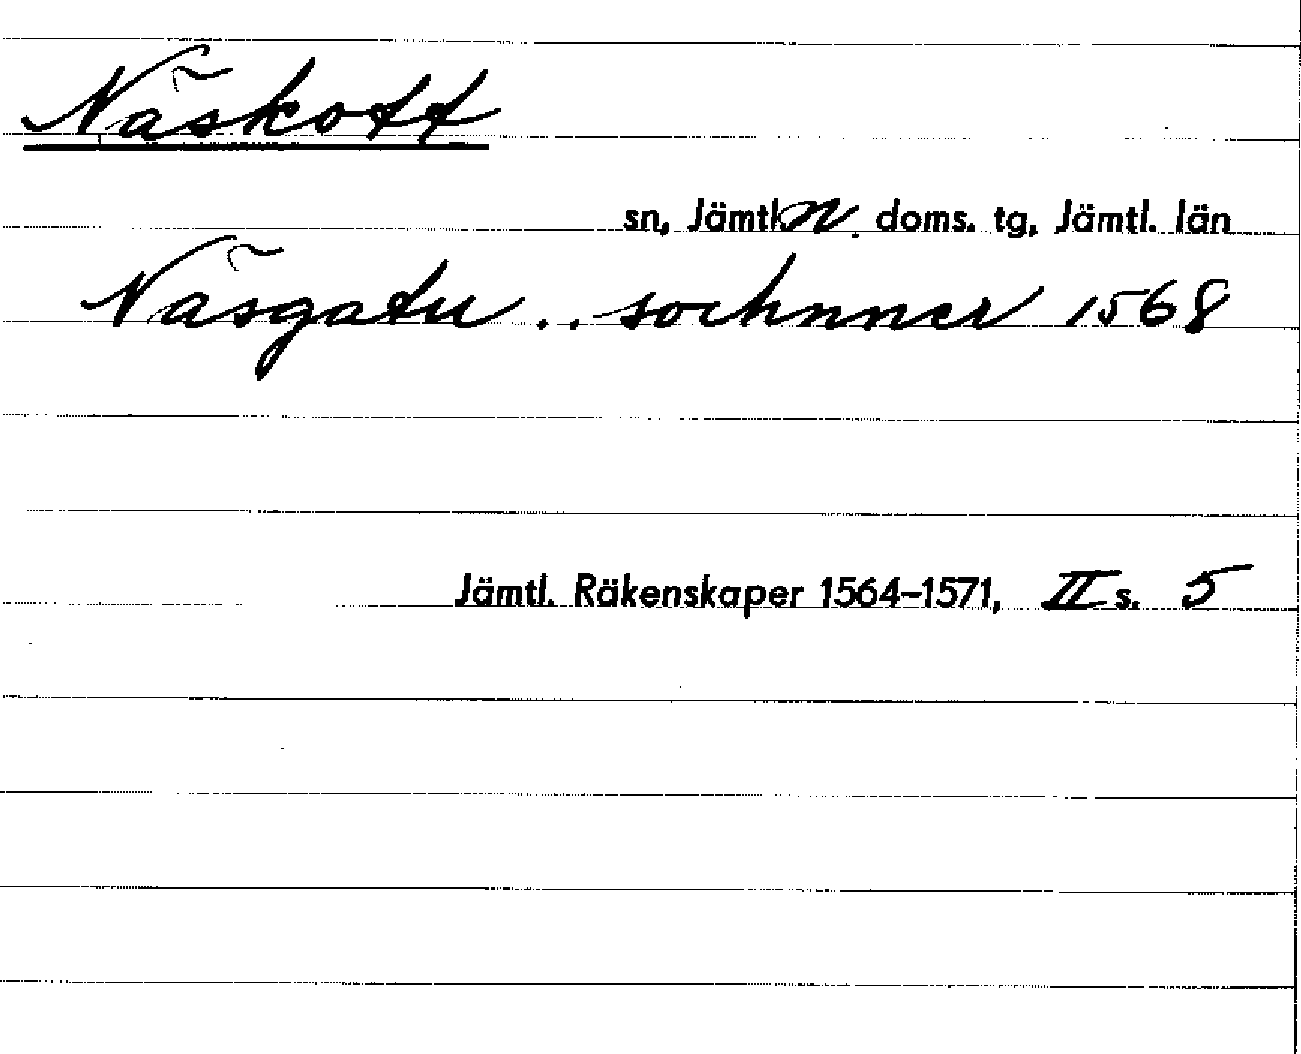 Näskott
sn, Jämtl. N. doms. tg, Jämtl. län
Näsgatu .. sochnner 1568
Jämtl. Räkenskaper 1564–1571, II s. 5